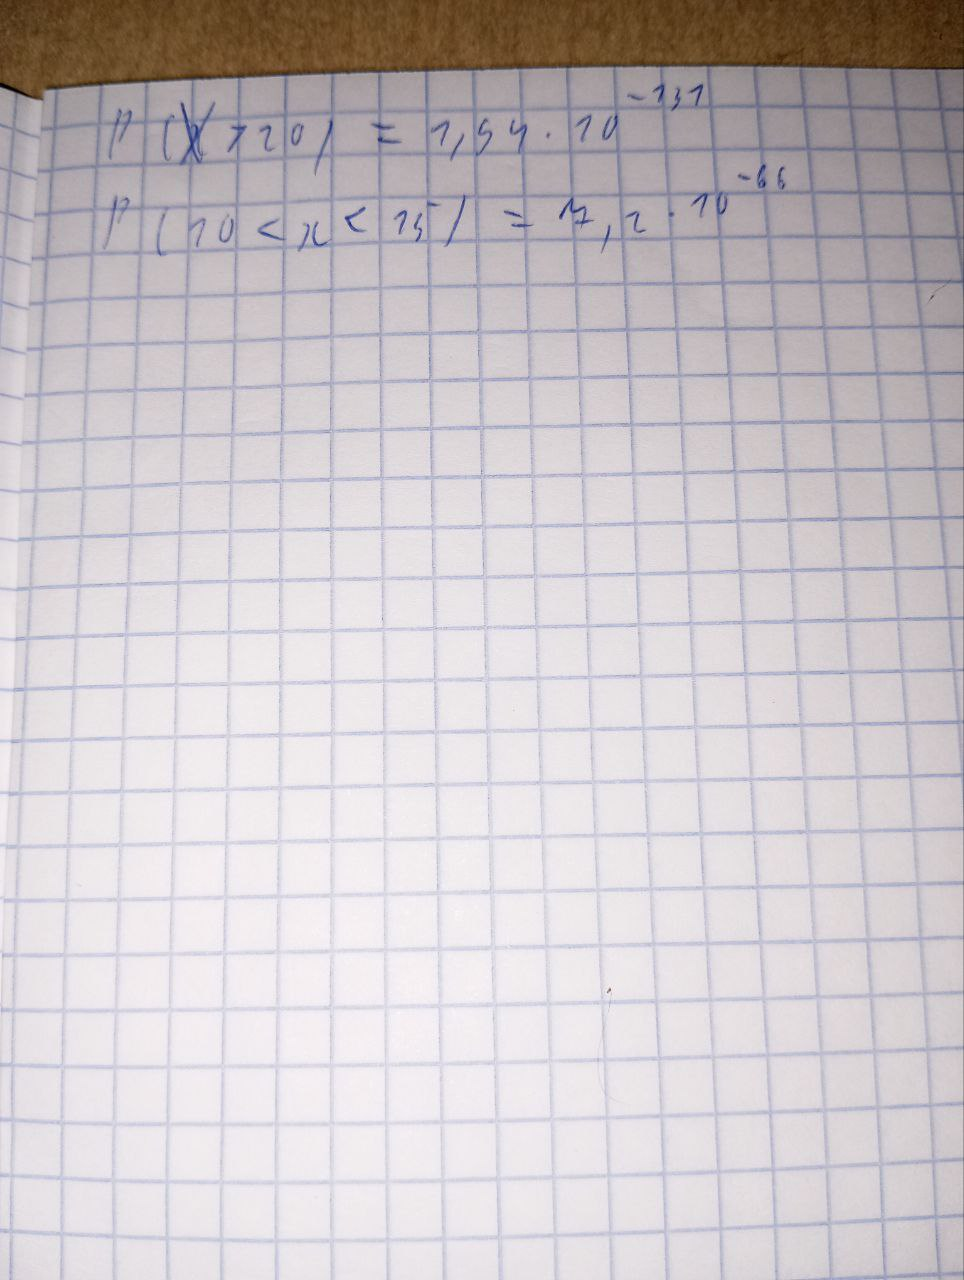 P (X > 20) = 1,54 · 10^-131
P (10 < x < 15) = 7,2 · 10^-66